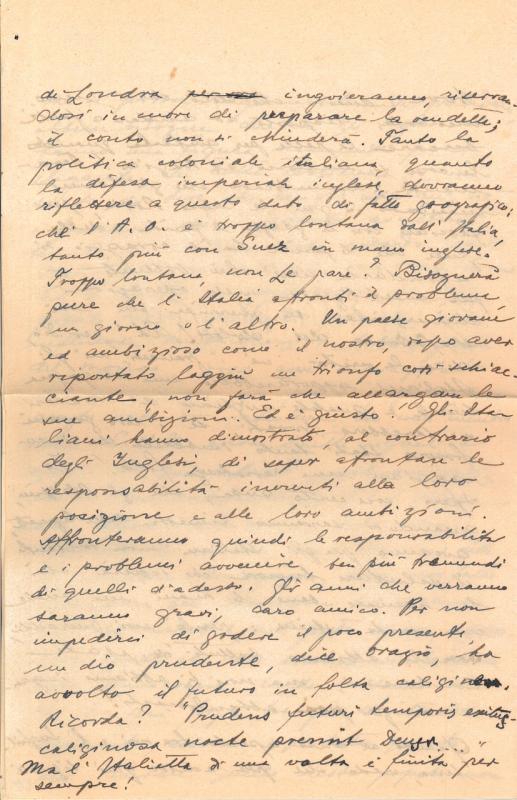 di Londra ingoieranno, riservan-
dosi in cuore di preparare la vendetta;
il conto non si chiuderà. Tanto la
politica coloniale italiana, quanto
la difesa imperiale inglese, dovranno
riflettere a questo dato di fatto geografico:
che l'A.O. è troppo lontana dall'Italia,
tanto più con Suez in mano inglese.
Troppo lontana, non Le pare? Bisognerà
pure che l'Italia affronti il problema,
un giorno o l'altro. Un paese giovane
ed ambizioso come il nostro, dopo aver
riportato laggiù un trionfo così schiac-
ciante, non farà che allargare le
sue ambizioni. Ed è giusto! Gli Ita-
liani hanno dimostrato, al contrario
degli Inglesi, di saper affrontare le
responsabilità inerenti alla loro
posizione e alle loro ambizioni.
Affronteranno quindi le responsabilità
e i problemi avvenire, ben più tremendi
di quelli d'adesso. Gli anni che verranno
saranno gravi, caro amico. Per non
impedirci di godere il poco presente,
un dio prudente, dice Orazio, ha
avvolto il futuro in folta caligine.
Ricorda? "Prudens futuri temporis exitus
caliginosa nocte premit Deus..."
Ma l'Italietta di una volta è finita per
sempre!